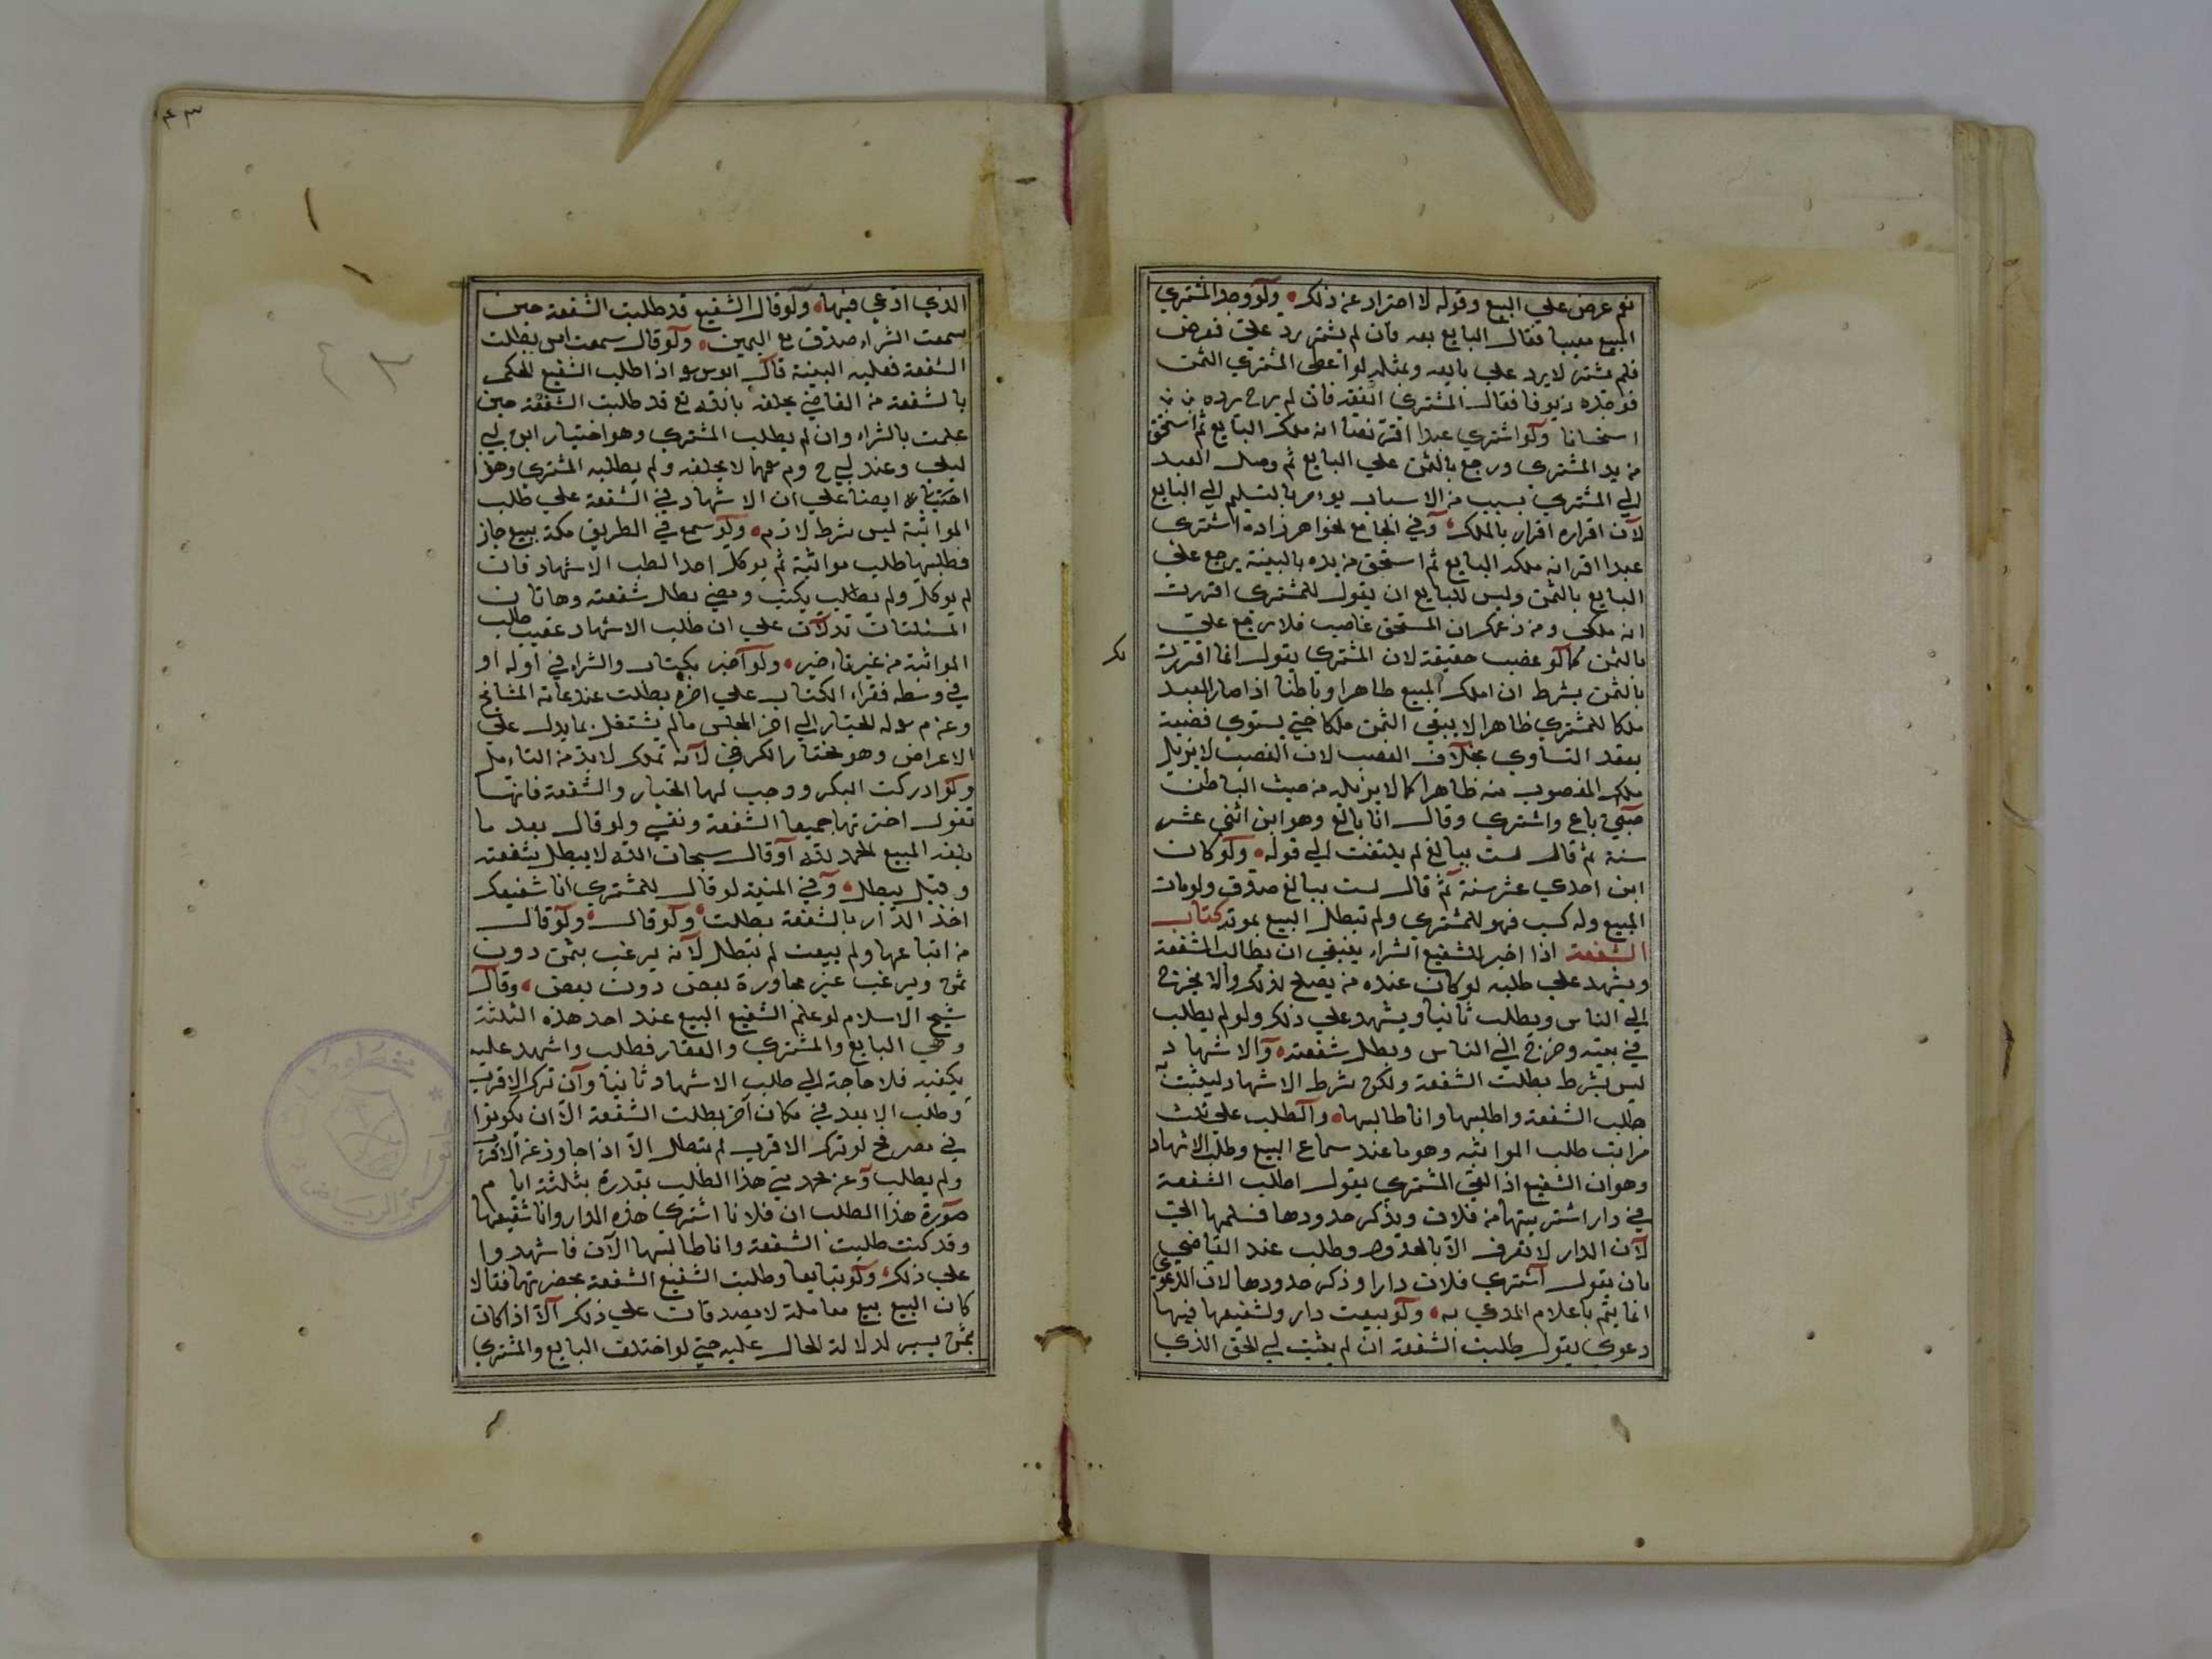 نعم عرض علي البيع وقوله لا احتراز عن ذلك ولو وجد المشتري
المبيع معيبا فقال البايع بعه فان لم يشتر رد علي فعرض
فلم يشتر لا يرد علي بايعه ومثله لو اعطي المشتري الثمن
فوجده زيوفا فقال المشتري انفقه فان لم يرج رده
استحسانا ولو اشتري عبدا اقر نصا انه ملك البايع ثم استحق
من يد المشتري ورجع بالثمن علي البايع ثم وصل العبد
الي المشتري بسبب من الاسباب يؤمر بالتسليم الي البايع
لان اقراره اقرار بالملك وفي الجامع لخواهر زاده اشتري
عبدا اقر انه ملك البايع ثم استحق من يده بالبينة يرجع علي
البايع بالثمن وليس للبايع ان يقول للمشتري اقررت
انه ملكي ومن زعمك ان المستحق غاصب فلا ترجع علي
بالثمن كما لو غصب حقيقة لان المشتري يقول انما اقررت
بالثمن بشرط ان املك المبيع ظاهرا وباطنا اذا صار العبد
ملكا للمشتري ظاهرا لا يبقي الثمن ملكا حتي يستوي قضية
بعقد التساوي بخلاف الغصب لان الغصب لا يزيل
ملك المغصوب منه ظاهرا كما لا يزيله من حيث الباطن
صبي باع واشتري وقال انا بالغ وهو ابن اثني عشر
سنة ثم قال لست ببالغ لم يلتفت الي قوله ولو كان
ابن احدي عشر سنة ثم قال لست ببالغ صدق ولو مات
المبيع وله كسب فهو للمشتري ولم تبطل البيع بموته كتاب
الشفعة اذا اخبر الشفيع الشراء ينبغي ان يطالب الشفعة
ويشهد علي طلبه لو كان عنده من يصلح لذلك والا يخرج
الي الناس ويطلب ثانيا ويشهد علي ذلك ولو لم يطلب
في بيته وخرج الي الناس وبطل شفعته والاشهاد
ليس بشرط بطلت الشفعة ولكن شرط الاشهاد ليثبت به
طلب الشفعة واطلبها وانا طالبها والطلب علي ثلث
مراتب طلب المواثبه وهو ما عند سماع البيع وطلب الاشهاد
وهو ان الشفيع اذا لقي المشتري يقول اطلب الشفعة
في دار اشتريتها من فلان ويذكر حدودها فسلمها الي
لان الدار لا تعرف الا بالحدود وطلب عند القاضي
بان يقول اشتري فلان دارا وذكر حدودها لان الدعوي
انما يتم باعلام المدعي به ولو بيعت دار ولشفيعها فيها
دعوي يقول طلبت الشفعة ان لم يثبت لي الحق الذي
٤٣
الذي ادعي فيها ولو قال الشفيع قد طلبت الشفعة حين
سمعت الشراء صدق مع اليمين ولو قال سمعت امس بطلت
الشفعة فعليه البينة قال ابويوسو اذا طلب الشفيع الحكم
بالشفعة من القاضي يحلفه بالله تع قد طلبت الشفعة حين
علمت بالشراء وان لم يطلب المشتري وهو اختيار ابن ابي
ليلي وعند ابي ح وم رحمهما لا يحلفه ولم يطلبه المشتري وهذا
اختياره ايضا علي ان الاشهاد في الشفعة علي طلب
المواثبة ليس شرط لازم ولو سمع في الطريق مكة ببيع جاز
فطلبها طلب مواثبة ثم يوكل احدا لطلب الاشهاد فان
لم يوكل ولم يطلب يكتب ومضي بطل شفعته وهاتان
المسئلتان تدلان علي ان طلب الاشهاد عقيب طلب
المواثبة من غير تاءخير ولو اخبر بكتاب والشراء في اوله او
في وسطه فقراء الكتاب علي اخره بطلت عند عامة المشايخ
وعن م رح له الخيار الي اخر المجلس ما لم يشتغل بما يدل علي
الاعراض وهو مختار الكرخي لانه تملك لا بد من التاءمل
ولو ادركت البكر ووجب لها الخيار والشفعة فانها
تقول اخترتها جميعا الشفعة ونفسي ولو قال بعد ما
بلغه المبيع الحمد لله او قال سبحان الله لا يبطل شفعته
وقيل يبطل وفي المنية لو قال للمشتري انا شفيعك
اخذ الدار بالشفعة بطلت ولو قال ولو قال
من ابتاعها ولم بيعت لم تبطل لانه يرغب بثمن دون
ثمن ويرغب عن مجاورة بعض دون بعض وقال
شيخ الاسلام لو علم الشفيع البيع عند احد هذه الثلثة
وهي البايع والمشتري والعقار فطلب واشهد عليه
يكفيه فلا حاجة الي طلب الاشهاد ثانيا وان ترك الاقرب
وطلب الابعد في مكان اخر بطلت الشفعة الا ان يكونوا
في مصر فح لو ترك الاقرب لم تبطل الا اذا جاوز عن الاقرب
ولم يطلب وعن محمد في هذا الطلب بقدرة بثلثة ايام
صورة هذا الطلب ان فلانا اشتري هذه الدار وانا شفيعها
وقد كنت طلبت الشفعة وانا طالبها الان فاشهدوا
علي ذلك ولو تبايعا وطلبت الشفيع الشفعة بحضرتهما فقالا
كان البيع بيع معاملة لا يصدقان علي ذلك الا اذا كان
بثمن يسير لدلالة الحال عليه حتي لو اختلف البايع والمشتري